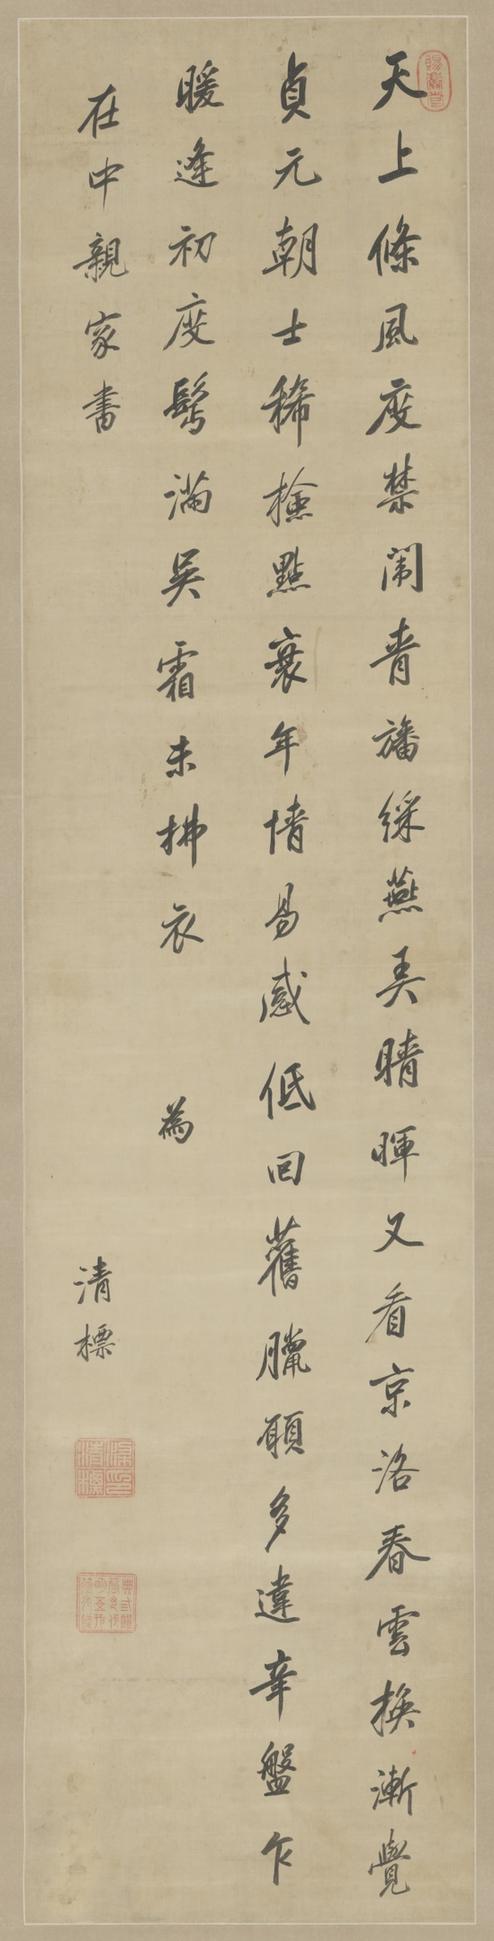 天上條風度禁闈青旛綵燕弄晴暉又看京洛春雲換漸覺
貞元朝士稀撿點衰年情易感低回舊臘願多違辛盤乍
暖逢初度鬢滿吳霜未拂衣 為
在中親家書 清標